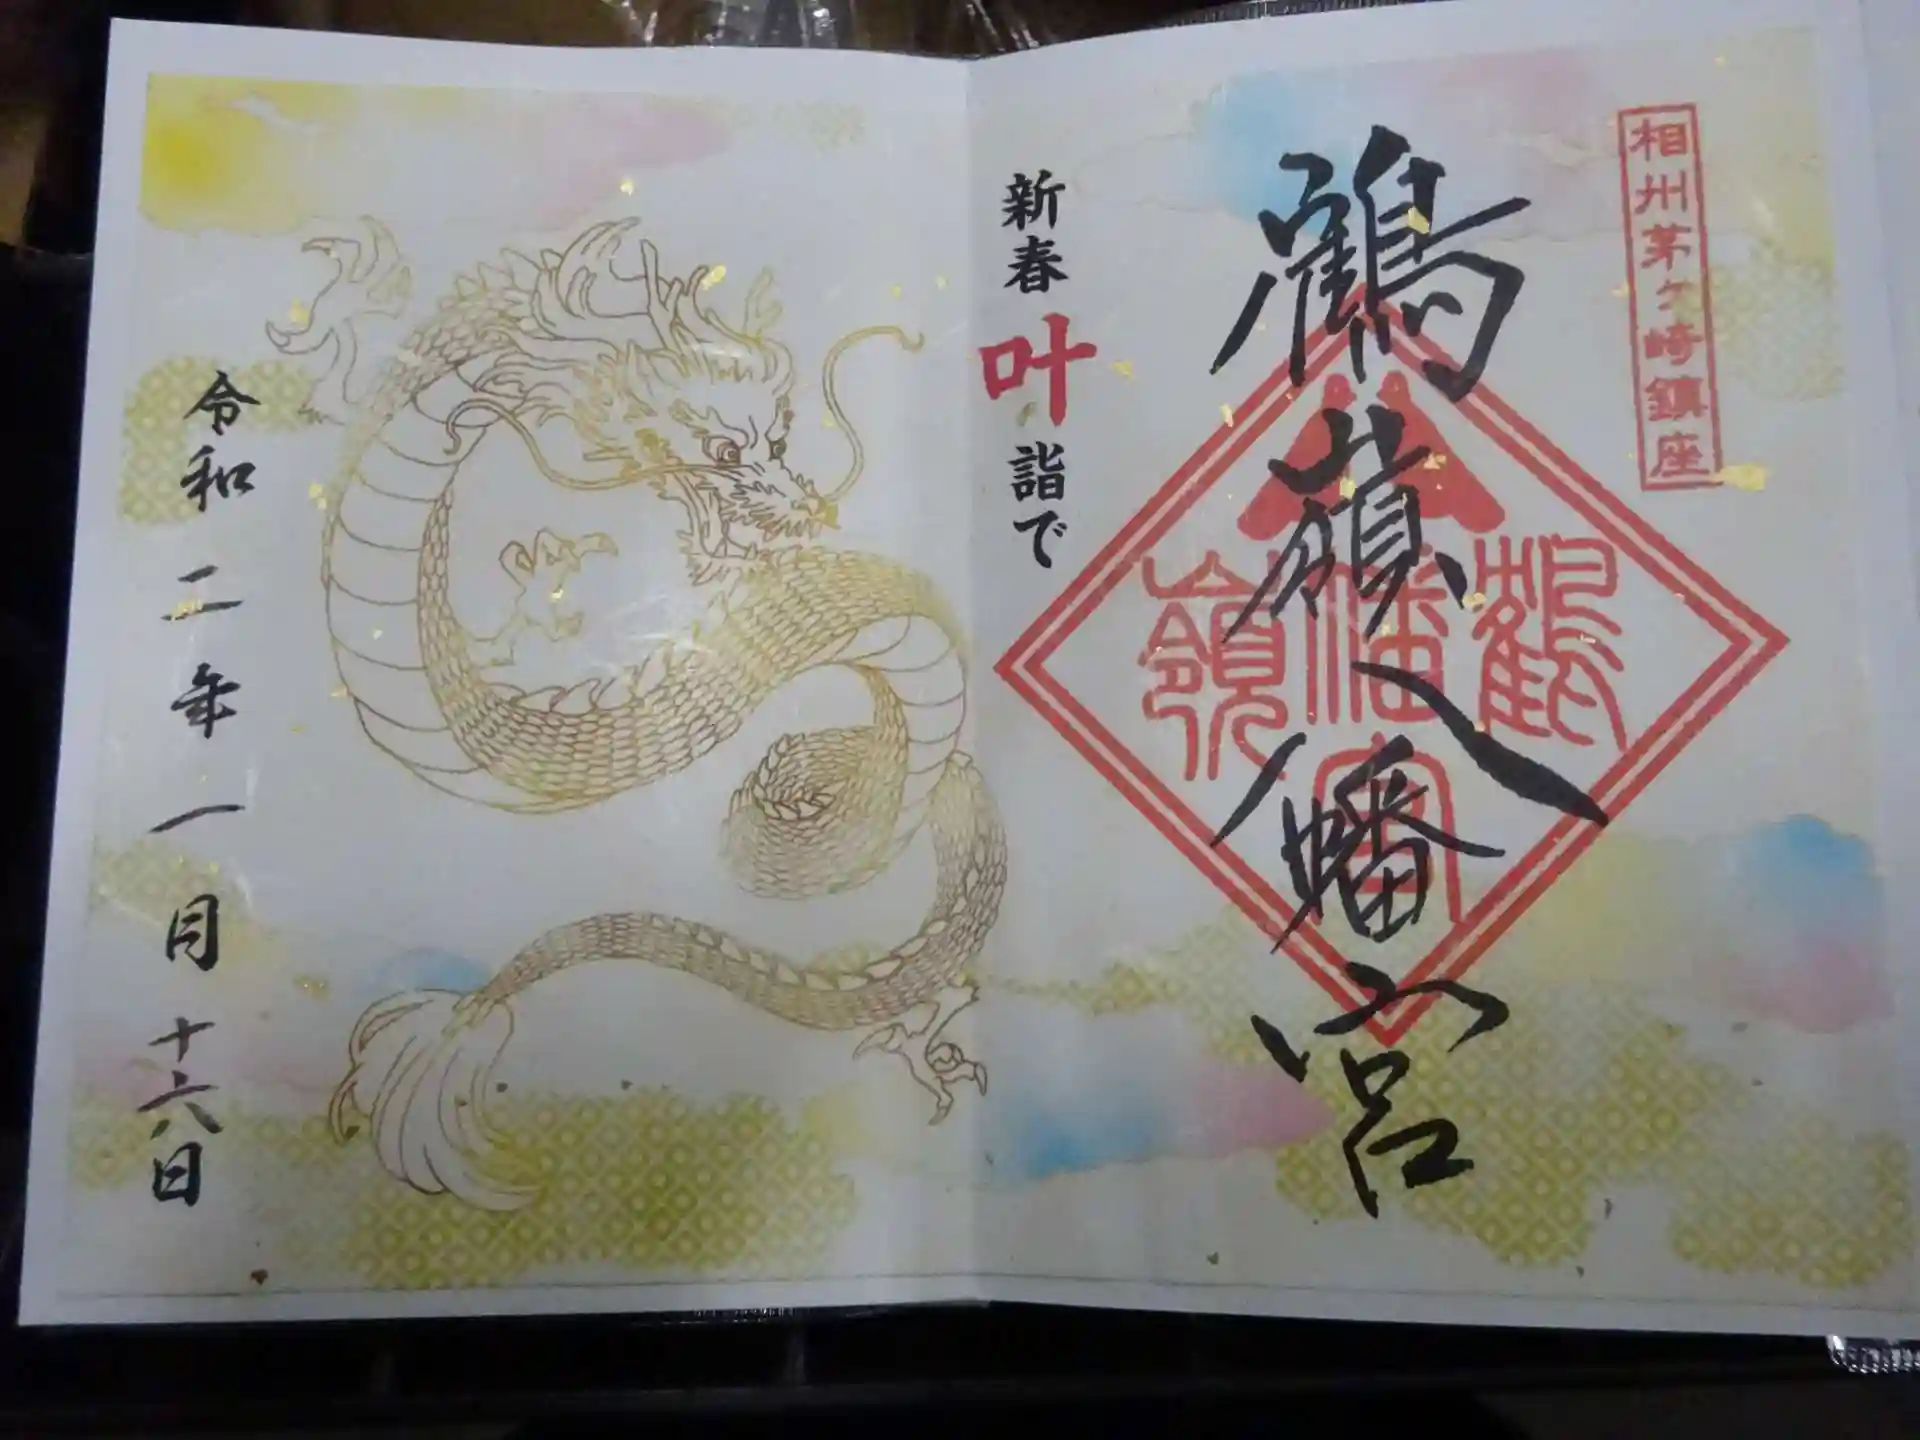 相州茅ヶ崎鎮座
鶴嶺八幡宮
鶴
幡宮
嶺
新春叶詣で
令和二年一月十六日